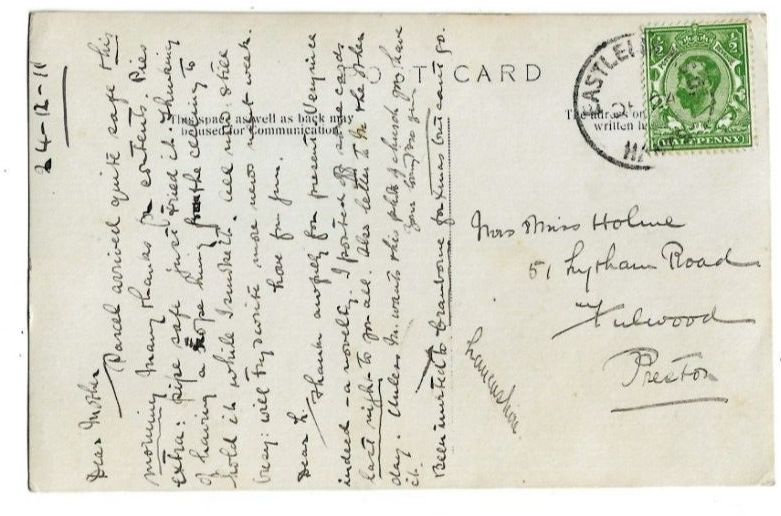 24-12-11
Dear Mother
Parcel arrived quite safe this
morning. Many thanks for contents. Pies
extra: pipe safe just tried it. Thinking
of having a rope hung from the ceiling to
hold it while I smoke it. All now. Still
busy: will try & write more news next week.
Dear
Thanks awfully for present. Very nice
indeed - a novelty. I posted off some cards
last night to you all. Also letter to the other
day. Unless wants this photo of church you have
it.
Been invited to Cranborne for Xmas but can't go.
POST CARD
This space as well as back may
be used for Communication.
The address on
written
EASTLEIGH
HALFPENNY
Mrs & Miss Holme
51 Lytham Road
Fulwood
Preston
Lancashire